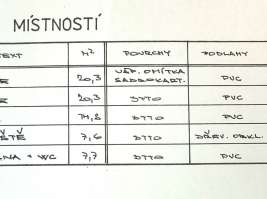 MÍSTNOSTÍ
TEXT M² POVRCHY PODLAHY
VÁP. OMÍTKA
20,3 SÁDROKART. PVC
20,3 DTTO PVC
14,8 DTTO PVC
IŠTĚ 7,6 DTTO DŘEV. OBKL.
LNA + WC 7,7 DTTO PVC